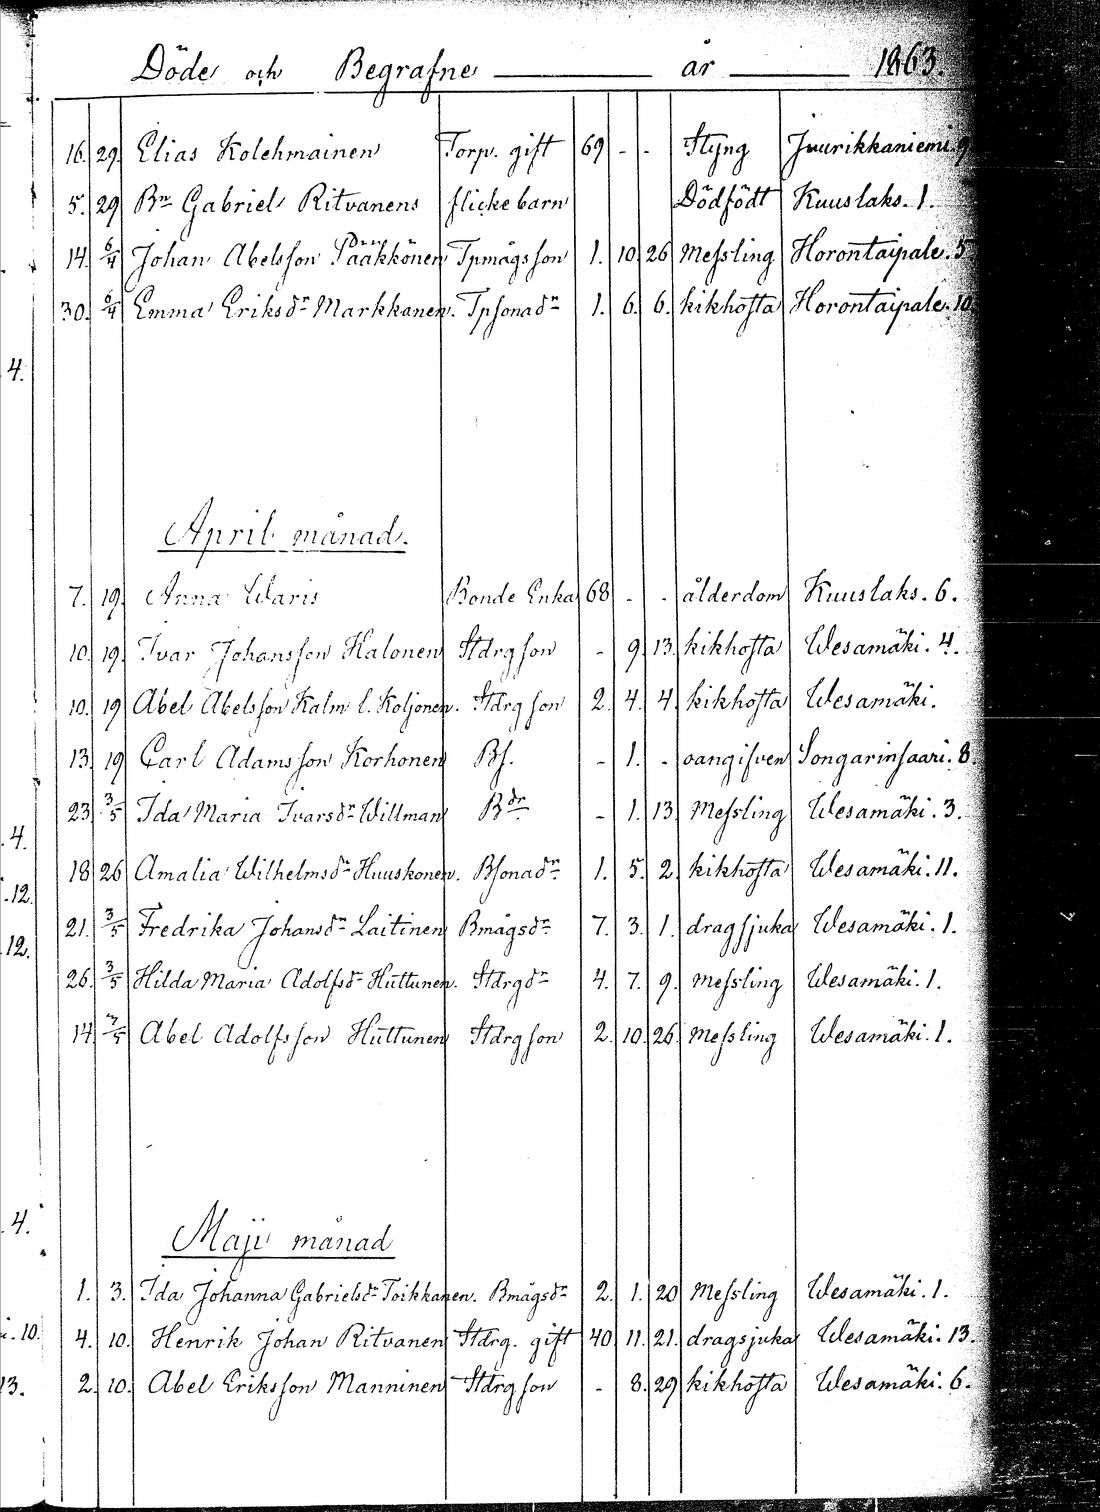 Döde och Begrafne år 1863.
16. 29. Elias Kolehmainen Torp. gift 69 - - Styng Juurikkaniemi. 9
5. 29 Bn Gabriel Ritvanens flickebarn Dödfödt Kuuslaks. 1.
14. 6/4 Johan Abelsson Pääkkönen Tpmågsson 1. 10. 26 Messling Horontaipale. 5
30. 6/4 Emma Eriksdr Markkanen. Tpsonadr 1. 6. 6. kikhosta Horontaipale. 10
4.
April månad.
7. 19. Anna Waris Bonde Enka 68 - - ålderdom Kuuslaks. 6.
10. 19. Ivar Johansson Halonen Stdrgson - 9. 13. kikhosta Wesamäki. 4.
10. 19 Abel Abelsson Kalm l. Koljonen. Stdrgson 2. 4. 4. kikhosta Wesamäki.
13. 19 Carl Adamsson Korhonen Bs. - 1. - oangifven Songarinsaari. 8
23. 3/5 Ida Maria Ivarsdr Willman Bdr. - 1. 13. Messling Wesamäki. 3.
.4.
18 26 Amalia Wilhelmsdr Huuskonen. Bsonadr 1. 5. 2. kikhosta Wesamäki. 11.
.12.
21. 3/5 Fredrika Johansdr Laitinen Bmågsdr 7. 3. 1. dragsjuka Wesamäki. 1.
12.
26. 3/5 Hilda Maria Adolfsdr Huttunen. Stdrgdr 4. 7. 9. Messling Wesamäki. 1.
14. 7/5 Abel Adolfsson Huttunen Stdrgson 2. 10. 26. Messling Wesamäki. 1.
.4.
Maji månad
1. 3. Ida Johanna Gabrielsdr Toikkanen. Bmågsdr 2. 1. 20 Messling Wesamäki. 1.
i. 10. 4. 10. Henrik Johan Ritvanen Stdrg. gift 40 11. 21. dragsjuka Wesamäki. 13.
13. 2. 10. Abel Eriksson Manninen Stdrgson - 8. 29 kikhosta Wesamäki. 6.